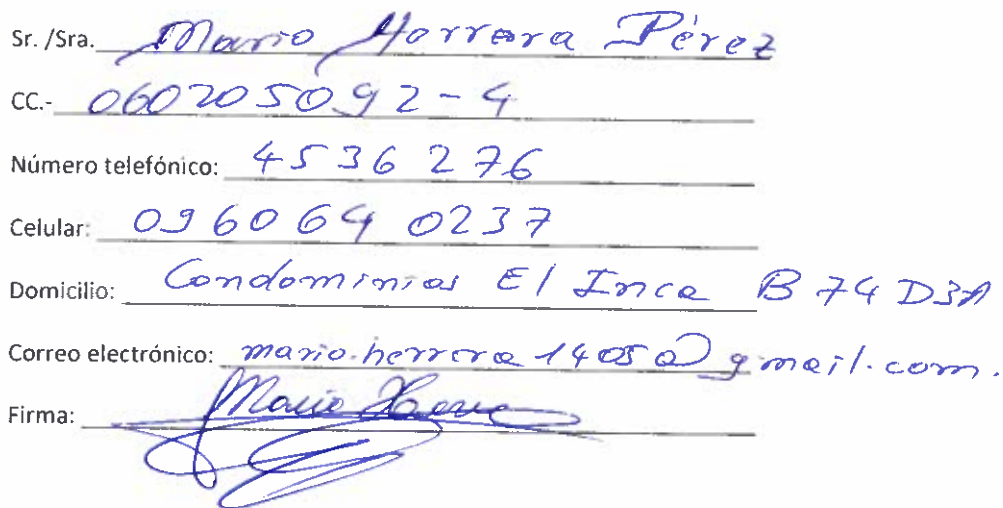 Sr. /Sra. Mario Herrera Pérez
CC.- 060205092-4
Número telefónico: 4536276
Celular: 0960640237
Domicilio: Condominios El Inca B 74 D3A
Correo electrónico: mario.herrera1405@gmail.com.
Firma: Mario Herrera